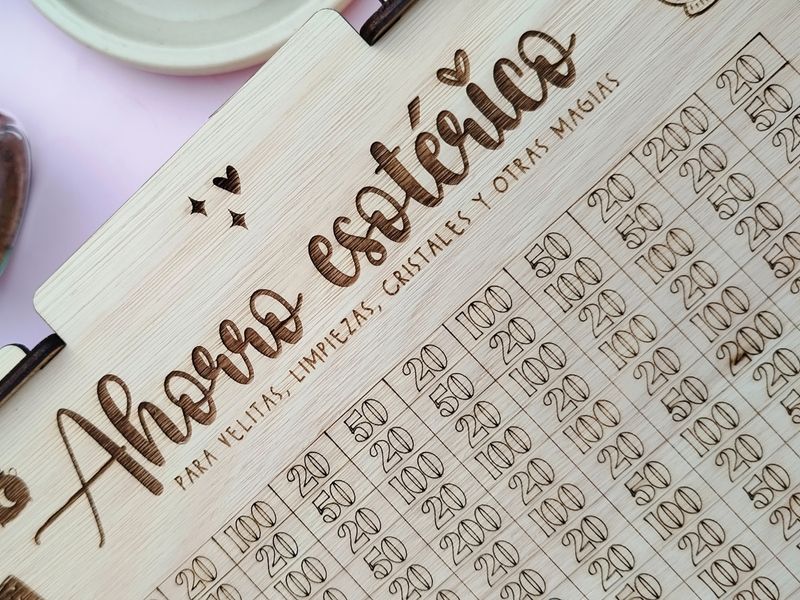 Ahorro esotérico
PARA VELITAS, LIMPIEZAS, CRISTALES Y OTRAS MAGIAS
20 100 20 50 20 100 50 20 200 20
20 50 20 50 20 100 50 100 50
100 20 100 20 100 20 100 20
50 20 100 20 100 20 50
20 200 20 100 20 100 50
20 100 20 50 200
20 50 100 200
20 100 20
20 100 50
100 100